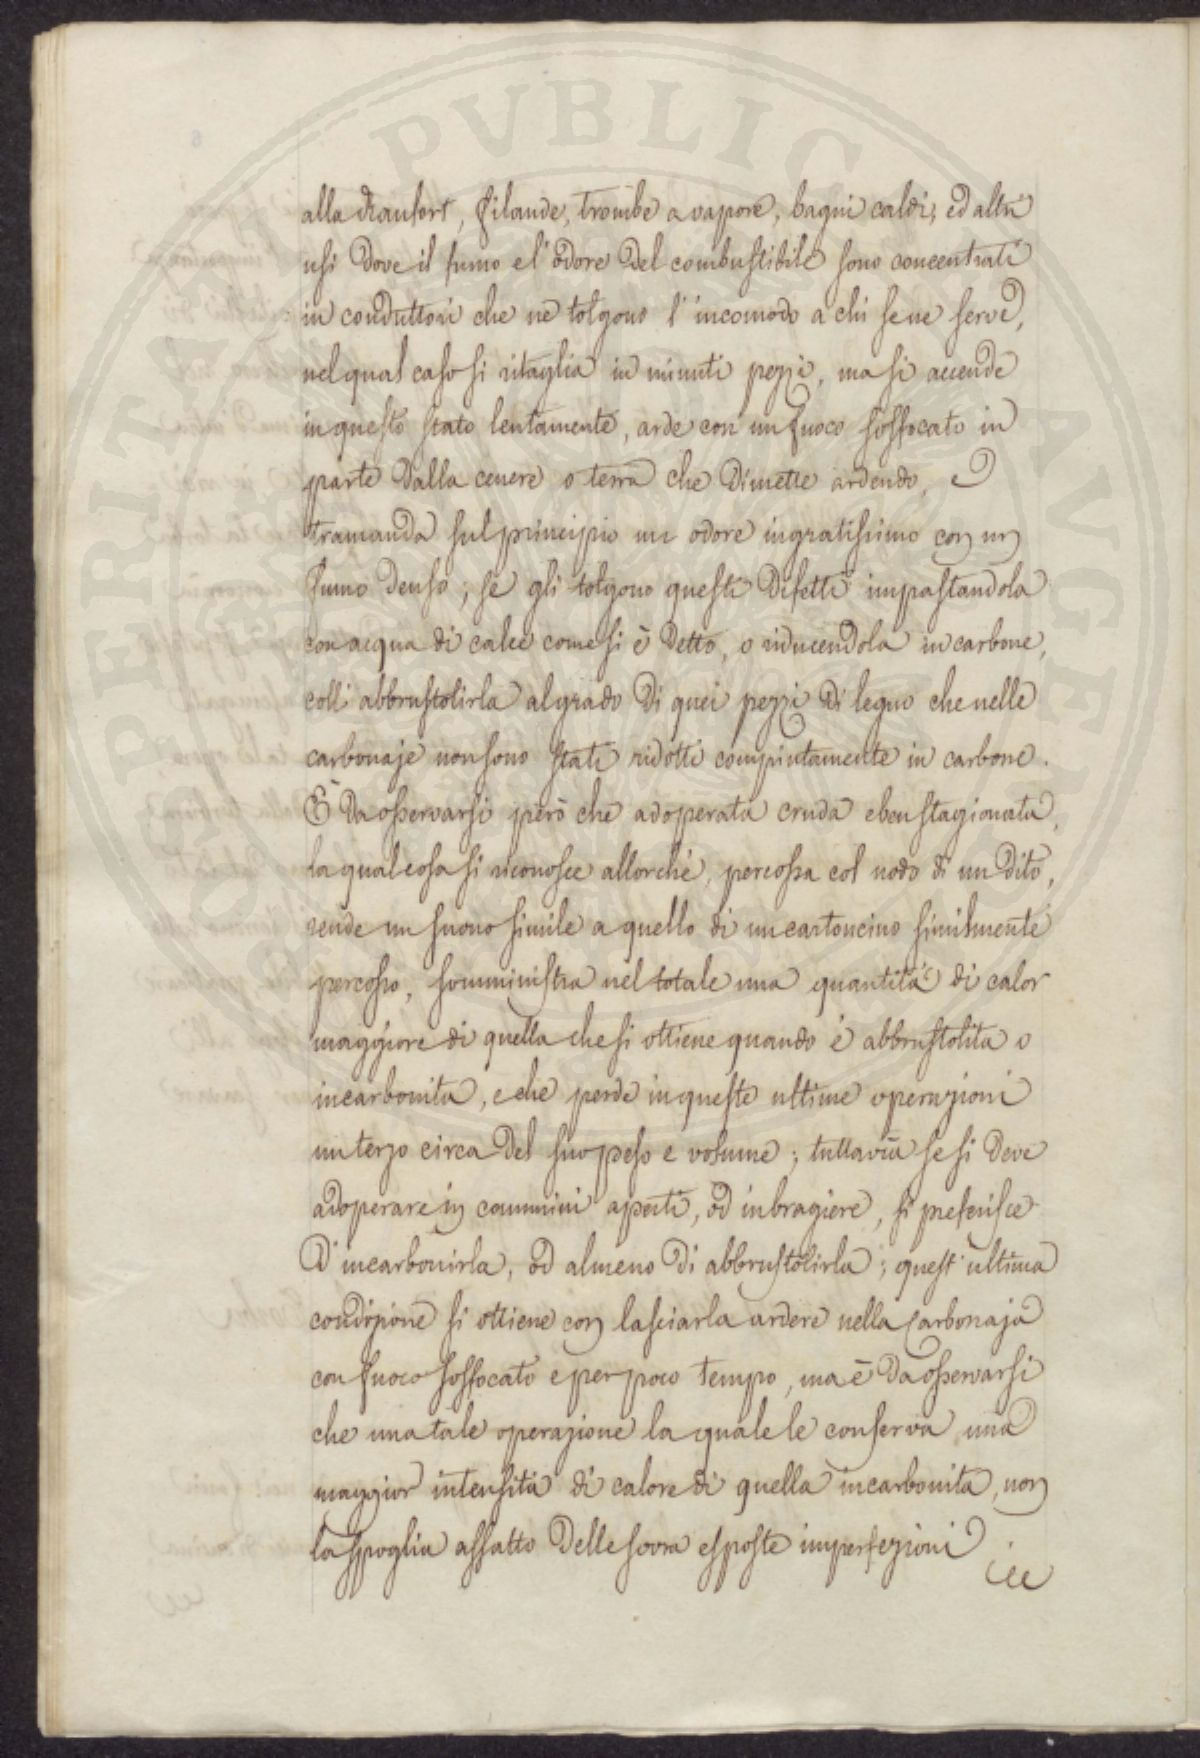 alla Ranfort, filande, trombe a vapore, bagni caldi, ed altri
usi dove il fumo e l'odore del combustibile sono concentrati
in conduttori che ne tolgono l'incomodo a chi se ne serve,
nel qual caso si ritaglia in minuti pezzi, ma si accende
in questo stato lentamente, arde con un fuoco soffocato in
parte dalla cenere o terra che dimette ardendo, e
tramanda sul principio un odore ingratissimo con un
fumo denso; se gli tolgono questi difetti impastandola
con acqua di calce come si è detto, o riducendola in carbone,
coll' abbrustolirla al grado di quei pezzi di legno che nelle
carbonaje non sono stati ridotti compiutamente in carbone.
È da osservarsi però che adoperata cruda e ben stagionata,
la qual cosa si riconosce allorchè, percossa col nodo di un dito,
rende un suono simile a quello di un cartoncino similmente
percosso, somministra nel totale una quantità di calor
maggiore di quella che si ottiene quando è abbrustolita o
incarbonita, e che perde in queste ultime operazioni
un terzo circa del suo peso e volume; tuttavia se si deve
adoperare in cammini aperti, od in bragiere, si preferisce
d'incarbonirla, od almeno di abbrustolirla; quest'ultima
condizione si ottiene con lasciarla ardere nella Carbonaja
con fuoco soffocato e per poco tempo, ma è da osservarsi
che una tale operazione la quale le conserva una
maggior intensità di calore di quella incarbonita, non
la spoglia affatto delle sovra esposte imperfezioni